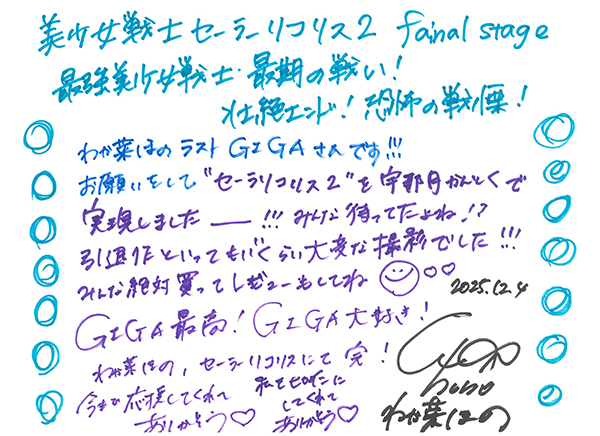 美少女戦士セーラーリコリス2 fainal stage
最強美少女戦士 最期の戦い!
壮絶エンド! 恐怖の戦慄!
わか葉ほのラストGIGAさんです!!!
お願いをして"セーラーリコリス2"を宇那月かんとくで
実現しました――!!! みんな待ってたよね!?
引退作といってもいいくらい大変な撮影でした!!!
みんな絶対買ってレビューもしてね
2025.12.4
GIGA最高! GIGA大好き!
わか葉ほの、セーラーリコリスにて完!
今まで応援してくれて
ありがとう♡
私をヒロインに
してくれて
ありがとう♡
hono
わか葉ほの